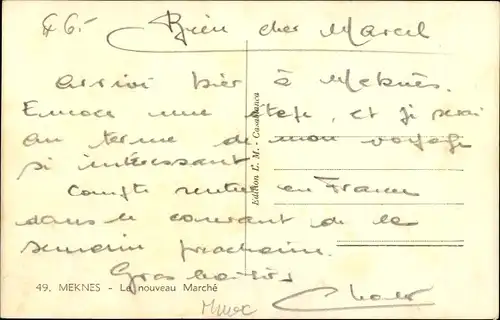 Bien cher Marcel
arrivé hier à Meknès.
Encore une étape, et je serai
au terme de mon voyage
si intéressant
Compte rentrer en France
dans le courant de la
semaine prochaine.
Gros baisers
Edition L. M. - Casablanca
49. MEKNES - Le nouveau Marché
Maroc